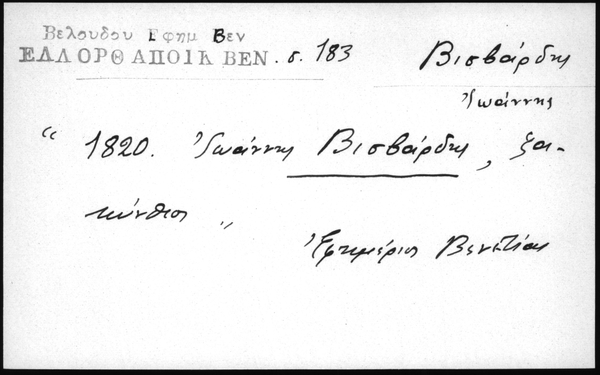 Βελουδου Εφημ Βεν
ΕΛΛ ΟΡΘ ΑΠΟΙΚ ΒΕΝ. σ. 183
Βισβάρδης
Ἰωάννης
“ 1820. Ἰωάννης Βισβάρδης, ζα-
κύνθιος „
Ἐφημέριος Βενετίας